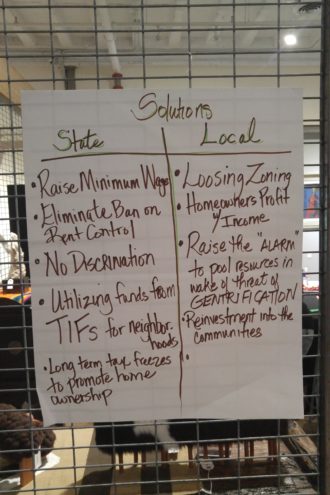 Solutions
State
• Raise Minimum Wage
• Eliminate Ban on
Rent Control
• No Discrination
• Utilizing funds from
TIFs for neighbor-
hoods
• Long term tax freezes
to promote home
ownership
Local
• Loosing Zoning
• Homeowners Profit
w/ Income
• Raise the "ALARM"
to pool resources in
wake of threat of
GENTRIFICATION
• Reinvestment into the
communities
•